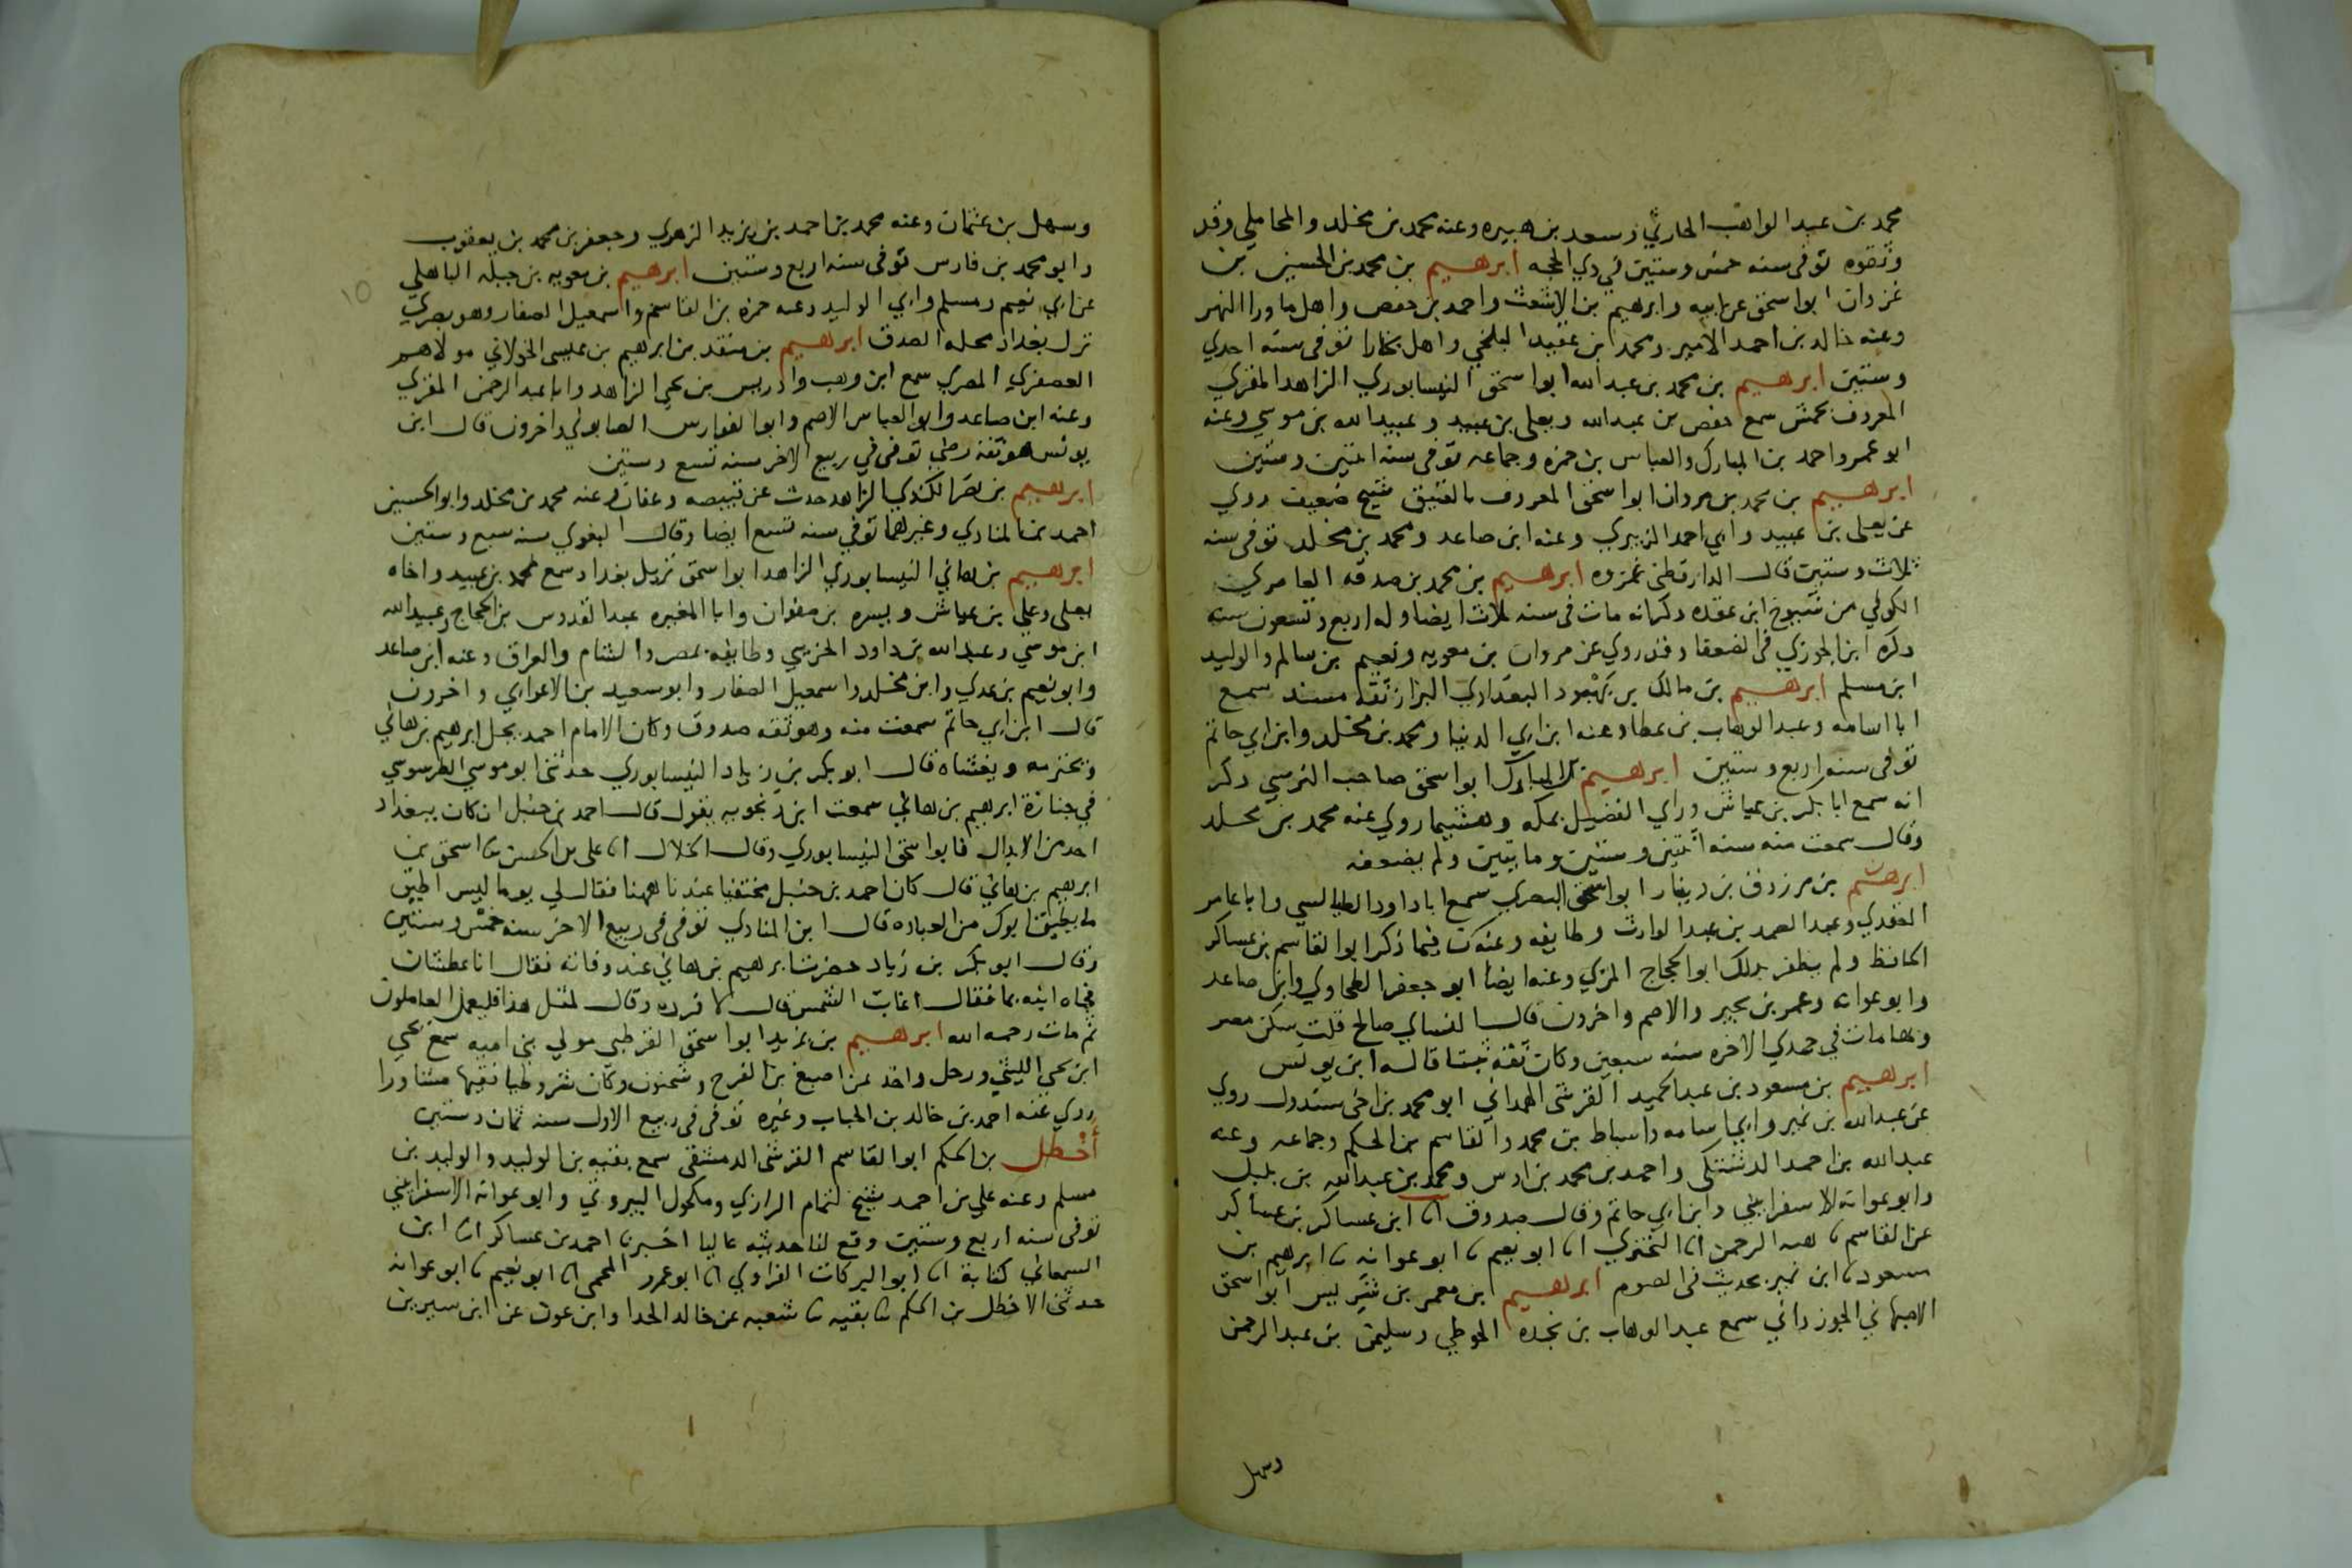 محمد بن عبد الواهب الحارثي وسعد بن هبيره وعنه محمد بن مخلد والمحاملي وقد
وثقوه توفى سنه خمس وستين في ذي الحجه ابرهيم بن محمد بن الحسين بن
غزوان ابو اسحق عن ابيه وابرهيم بن الاشعث واحمد بن حفص واهل ما ورا النهر
وعنه خالد بن احمد الامير ومحمد بن عقيد البلخي واهل بخارا توفى سنه احدي
وستين ابرهيم بن محمد بن عبد الله ابو اسحق النيسابوري الزاهد المقري
المعروف بحمش سمع حفص بن عبد الله ويعلى بن عبيد وعبيد الله بن موسي وعنه
ابو عمرو احمد بن المبارك والعباس بن حمزه وجماعه توفى سنه اثنتين وستين
ابرهيم بن محمد بن مروان ابو اسحق المعروف بالعتيق شيخ ضعيف روي
عن يعلى بن عبيد وابي احمد الزبيري وعنه ابن صاعد ومحمد بن مخلد توفى سنه
ثلاث وستين قال الدارقطني غمزوه ابرهيم بن محمد بن صدقه العامري
الكوفي من شيوخ ابن عقده ذكر انه مات في سنه ثلاث ايضا وله اربع وتسعون سنه
ذكره ابن الجوزي في الضعفا وقد روي عن مروان بن معويه ونعيم بن سالم والوليد
ابن مسلم ابرهيم بن مالك بن بهبود البغدادي البزاز ثقه مسند سمع
ابا اسامه وعبد الوهاب بن عطا وعنه ابن ابي الدنيا ومحمد بن مخلد وابن ابي حاتم
توفى سنه اربع وستين ابرهيم بن المبارك ابو اسحق صاحب النرسي ذكر
انه سمع ابا بكر بن عياش وراي الفضيل بمكه وهشيما روي عنه محمد بن مخلد
وقال سمعت منه سنه اثنتين وستين ومايتين ولم يضعفه
ابرهيم بن مرزوق بن دينار ابو اسحق البصري سمع ابا داود الطيالسي وابا عامر
العقدي وعبد الصمد بن عبد الوارث وطايفه وعنه ن فيما ذكر ابو القاسم بن عساكر
الحافظ ولم يظفر بذلك ابو الحجاج المزي وعنه ايضا ابو جعفر الطحاوي وابن صاعد
وابو عوانه وعمر بن بجير والاصم واخرون قال النساي صالح قلت سكن مصر
وبها مات في جمدي الاخره سنه سبعين وكان ثقه ثبتا قاله ابن يونس
ابرهيم بن مسعود بن عبد الحميد القرشي الهمداني ابو محمد بن اخي سندول روي
عن عبد الله بن نمير وابي اسامه واسباط بن محمد والقاسم بن الحكم وجماعه وعنه
عبد الله بن احمد الدشتكى واحمد بن محمد بن اوس ومحمد بن عبد الله بن بلبل
وابو عوانه الاسفرايني وابن ابي حاتم وقال صدوق انا ابن عساكر بن عساكر
عن القاسم نا هبه الرحمن انا البحتري انا ابو نعيم نا ابو عوانه نا ابرهيم بن
مسعود نا ابن نمير بحديث في الصوم ابرهيم بن معمر بن شريس ابو اسحق
الاصبهاني الجوزداني سمع عبد الوهاب بن نجده الحوطي وسليمن بن عبد الرحمن
وسهل
وسهل بن عثمان وعنه محمد بن احمد بن يزيد الزهري وجعفر بن محمد بن يعقوب
وابو محمد بن فارس توفى سنه اربع وستين ابرهيم بن معويه بن جبله الباهلي
عن ابي نعيم ومسلم وابي الوليد وعنه حمزه بن القاسم واسمعيل الصفار وهو بصري
نزل بغداد محله الصدق ابرهيم بن منقذ بن ابرهيم بن عيسى الخولاني مولاهم
العصفري المصري سمع ابن وهب وادريس بن يحيى الزاهد وابا عبد الرحمن المقري
وعنه ابن صاعد وابو العباس الاصم وابو الفوارس الصابوني واخرون قال ابن
يونس هو ثقه رضي توفى في ربيع الاخر سنه تسع وستين
ابرهيم بن نصر الكندي الزاهد حدث عن قبيصه وعفان وعنه محمد بن مخلد وابو الحسين
احمد بن المنادي وغيرهما توفي سنه تسع ايضا وقال البغوي سنه سبع وستين
ابرهيم بن هاني النيسابوري الزاهد ابو اسحق نزيل بغداد سمع محمد بن عبيد واخاه
يعلى وعلي بن عياش ويسره بن صفوان وابا المغيره عبد القدوس بن الحجاج وعبيد الله
ابن موسي وعبد الله بن داود الخريبي وطايفه بمصر والشام والعراق وعنه ابن صاعد
وابو نعيم بن عدي وابن مخلد واسمعيل الصفار وابو سعيد بن الاعرابي واخرون
قال ابن ابي حاتم سمعت منه وهو ثقه صدوق وكان الامام احمد يجل ابرهيم بن هاني
ويحترمه ويغشاه قال ابو بكر بن زياد النيسابوري حدثني ابو موسي الطرسوسي
في جنازة ابرهيم بن هاني سمعت ابن زنجويه يقول قال احمد بن حنبل ان كان ببغداد
احد من الابدال فابو اسحق النيسابوري وقال الخلال انا على بن الحسن نا اسحق بن
ابرهيم بن هاني قال كان احمد بن حنبل مختفيا عندنا ههنا فقال لي يوما ليس اطيق
ما يطيق ابوك من العباده قال ابن المنادي توفى في ربيع الاخر سنه خمس وستين
وقال ابو بكر بن زياد حضرت ابرهيم بن هاني عند وفاته فقال انا عطشان
فجاه ابنه بما فقال اغابت الشمس قال لا فرده وقال لمثل هذا فليعمل العاملون
ثم مات رحمه الله ابرهيم بن يزيد ابو اسحق القرطبي مولي بني اميه سمع يحيى
ابن يحي الليثي ورحل واخذ عن اصبغ بن الفرج وسحنون وكان شروطيا فقيها مشاورا
روي عنه احمد بن خالد بن الحباب وغيره توفى في ربيع الاول سنه ثمان وستين
أخطل بن الحكم ابو القاسم القرشي الدمشقي سمع بقيه بن الوليد والوليد بن
مسلم وعنه علي بن احمد شيخ لتمام الرازي ومكحول البيروتي وابو عوانه الاسفرايني
توفى سنه اربع وستين وقع لنا حديثه عاليا اخبرنا احمد بن عساكر انا ابن
السمعاني كتابة انا ابو البركات الفراوي انا ابو عمرو المحمي انا ابو نعيم نا ابو عوانه
حدثني الاخطل بن الحكم نا بقيه نا شعبه عن خالد الحذا وابن عون عن ابن سيرين